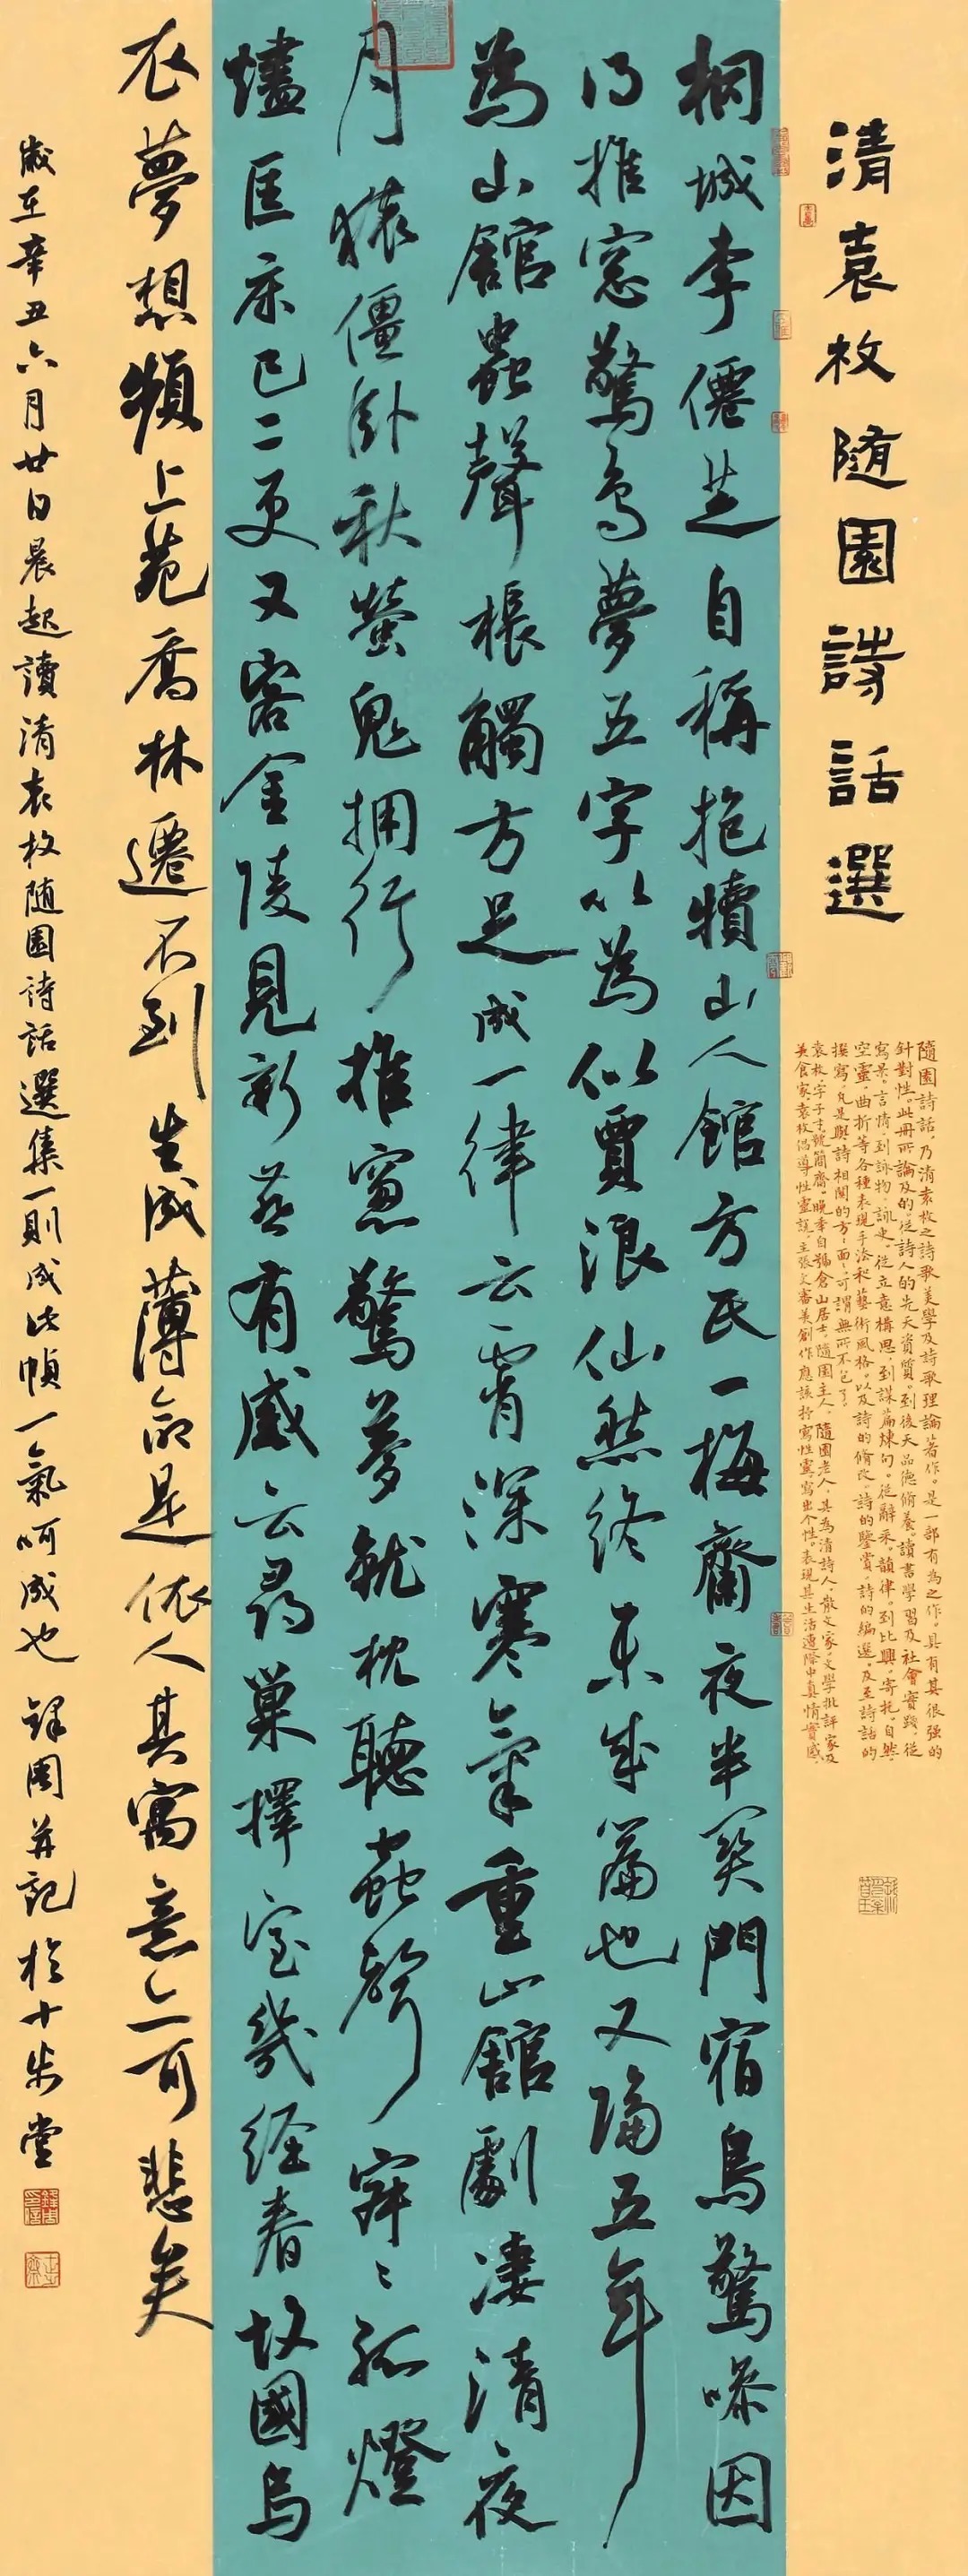 清袁枚随園詩話選
隨園詩話，乃清袁枚之詩歌美學及詩歌理論著作。是一部有為之作。具有其很强的
針對性。此册所論及的，從詩人的先天資質。到後天品德脩養。讀書學習及社會實踐。從
寫景。言情。到詠物。詠史。從立意構思。到謀篇煉句。從辭采。韻律。到比興。寄托。自然。
空靈。曲折等各種表現手法和藝術風格。以及詩的脩改。詩的鑒賞。詩的編選。及至詩話的
撰寫。凡是與詩相關的方方面面。可謂無所不包了。
袁枚。字子才。號簡齋。晚年自號倉山居士。隨園主人。隨園老人。其為清詩人。散文家。文學批評家及
美食家。袁枚倡導性靈說。主張文審美創作應該抒寫性靈。寫出个性。表現其生活遭際中真情實感。
桐城李僊芝自稱抱犢山人館方氏一梅齋夜半関門宿鳥驚噪因
得推窓驚鳥夢五字以為似賈浪仙然終未成篇也又隔五年
為山館蟲聲棖觸方足成一律云宵深寒氣重山館劇凄清夜
月猿僵卧秋螢鬼拥行推窻驚鳥夢就枕聽蟲聲寂寂孤燈
燼匡床已二更又客金陵見新燕有感云尋巢擇室幾經春故國烏
衣夢想頻上苑喬林遷不到生成薄命是依人其寓意亦可悲矣
歲在辛丑六月廿日晨起讀清袁枚随園詩話選集一則成此幀一氣呵成也 鋒周并記於十步堂